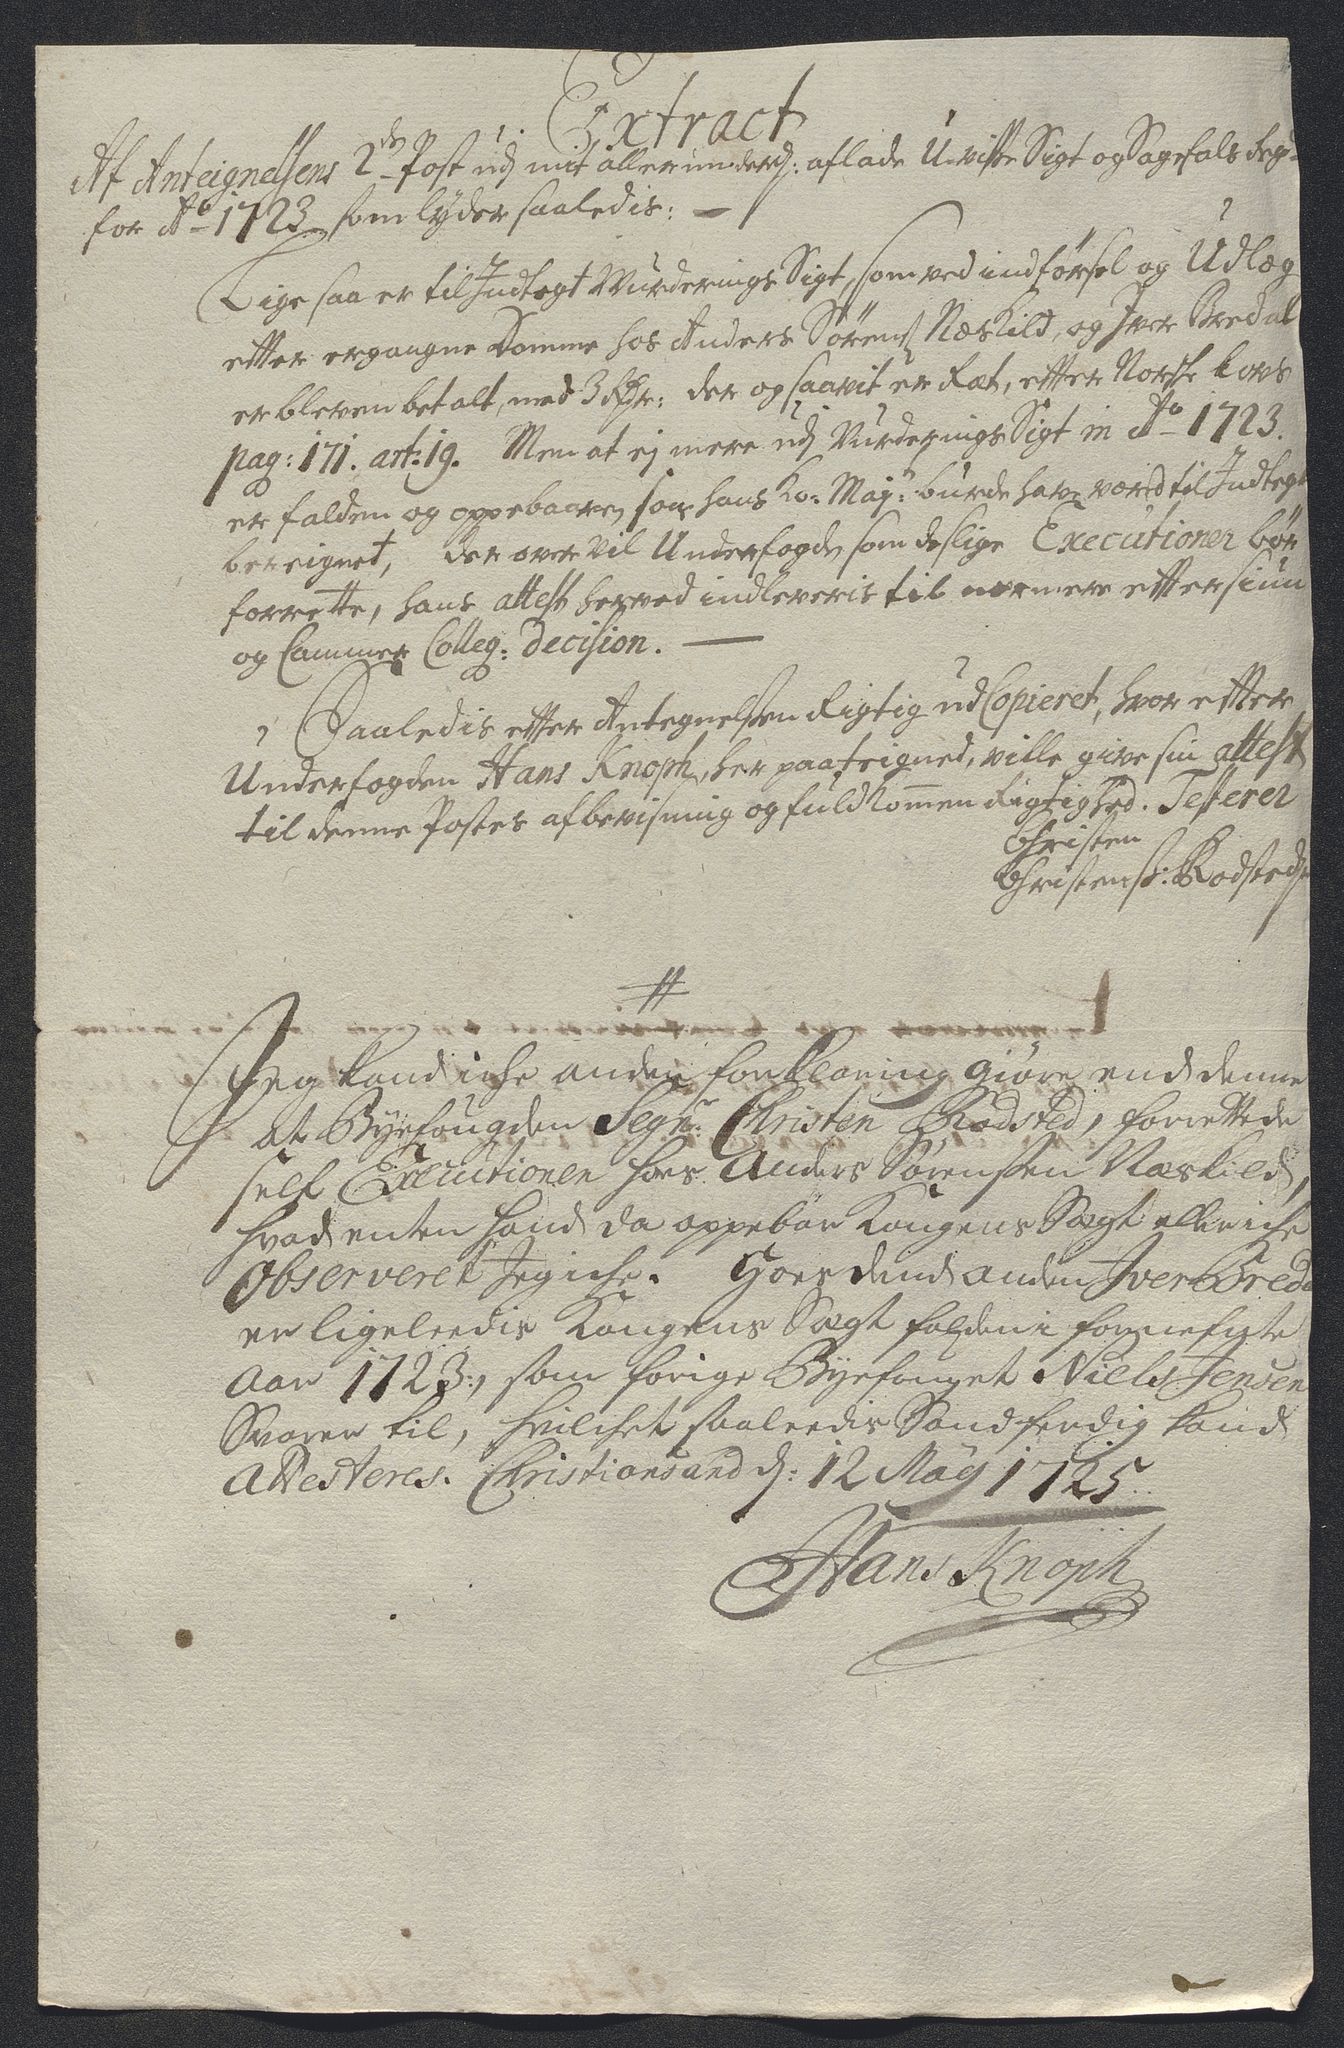 Extract
Af Anteignelsens 2den Post udj mit allerunderd: aflade Uvisse Sigt og Sagefals Regn:
for Ao 1723 som lyder saaledis:
Lige saa er til Indtegt Wurderings Sigt, som ved indførsel og Udlæg
etter ergangne Domme hos Anders Sørens: Næskild, og Iver Bredal
er bleven betalt, med 3 Rdr: der og saavit er Ræt, etter Norske Lovs
pag: 171. art: 19. Men at ej mere udj Vurderings Sigt in Ao 1723.
er falden og oppebaaren, som hans Ko: Maj: burde have værd til Indtegt
bereignet, der over vil Underfogden som deslige Executioner bør
forrette, hans attest herved indleveris til nærmere etter siun
og Cammer Colleg: decision.
Saaledis etter Antegnelsen Rigtig ud Copieret, hvor etter
Underfogden Hans Knoph, her paateigned, ville give sin attest
til denne Postes afbevisning og fuldkommen Rigtighed. Testerer
Christen
Christens: Rodsted
Jeg kand iche anden forklaring giøre end denne
At Byefougden Segr: Christen Rodsted, forrettede
self Executionen hoes Anders Sørensen Næskild,
hvad enten hand da oppebar Kongens Sagt eller iche
Observeret Jeg iche. Hoes dend anden Iver Breda
er ligeleedis Kongens Sagt falden i forneefnte
Aar 1723:, som forige Byefouget Niels Jensen
Svarer til, hvilchet saaleedis Sandferdig kand
Attesteres. Christiansand d: 12 Maÿ 1725.
Hans Knoph